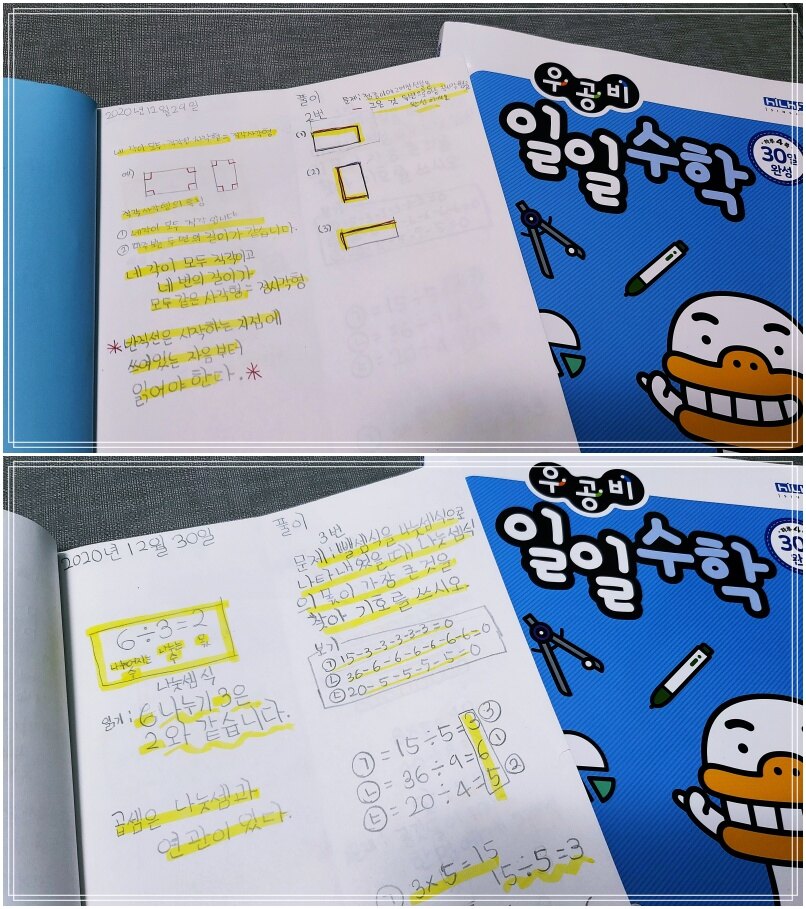 2020년 12월 29일
네 각이 모두 직각인 사각형 = 직사각형
예)
직사각형의 특징
① 네각이 모두 직각 입니다
② 마주보는 두 변의 길이가 같습니다.
네 각이 모두 직각이고
네 변의 길이가
모두 같은 사각형 = 정사각형
*반직선은 시작하는 지점에
쓰여있는 자음부터
읽어야 한다.*
풀이
2번
문제:
(1)
(2)
(3)
우공비
일일수학
하루 4쪽
30일
완성
2020년 12월 30일
6÷3=2
나누어지는 수
나누는 수
몫
나눗셈식
읽기: 6 나누기 3은
2와 같습니다.
곱셈은 나눗셈과
연관이 있다.
풀이
3번
문제: 뺄셈식을 나눗셈식으로
나타내었을 때 나눗셈식
의 몫이 가장 큰 것을
찾아 기호를 쓰시오.
보기
㉠ 15-3-3-3-3-3=0
㉡ 36-6-6-6-6-6-6=0
㉢ 20-5-5-5-5=0
㉠=15÷5=3 ③
㉡=36÷9=6 ①
㉢=20÷4=5 ②
㉠ 3×5=15 15÷5=3
우공비
일일수학
30